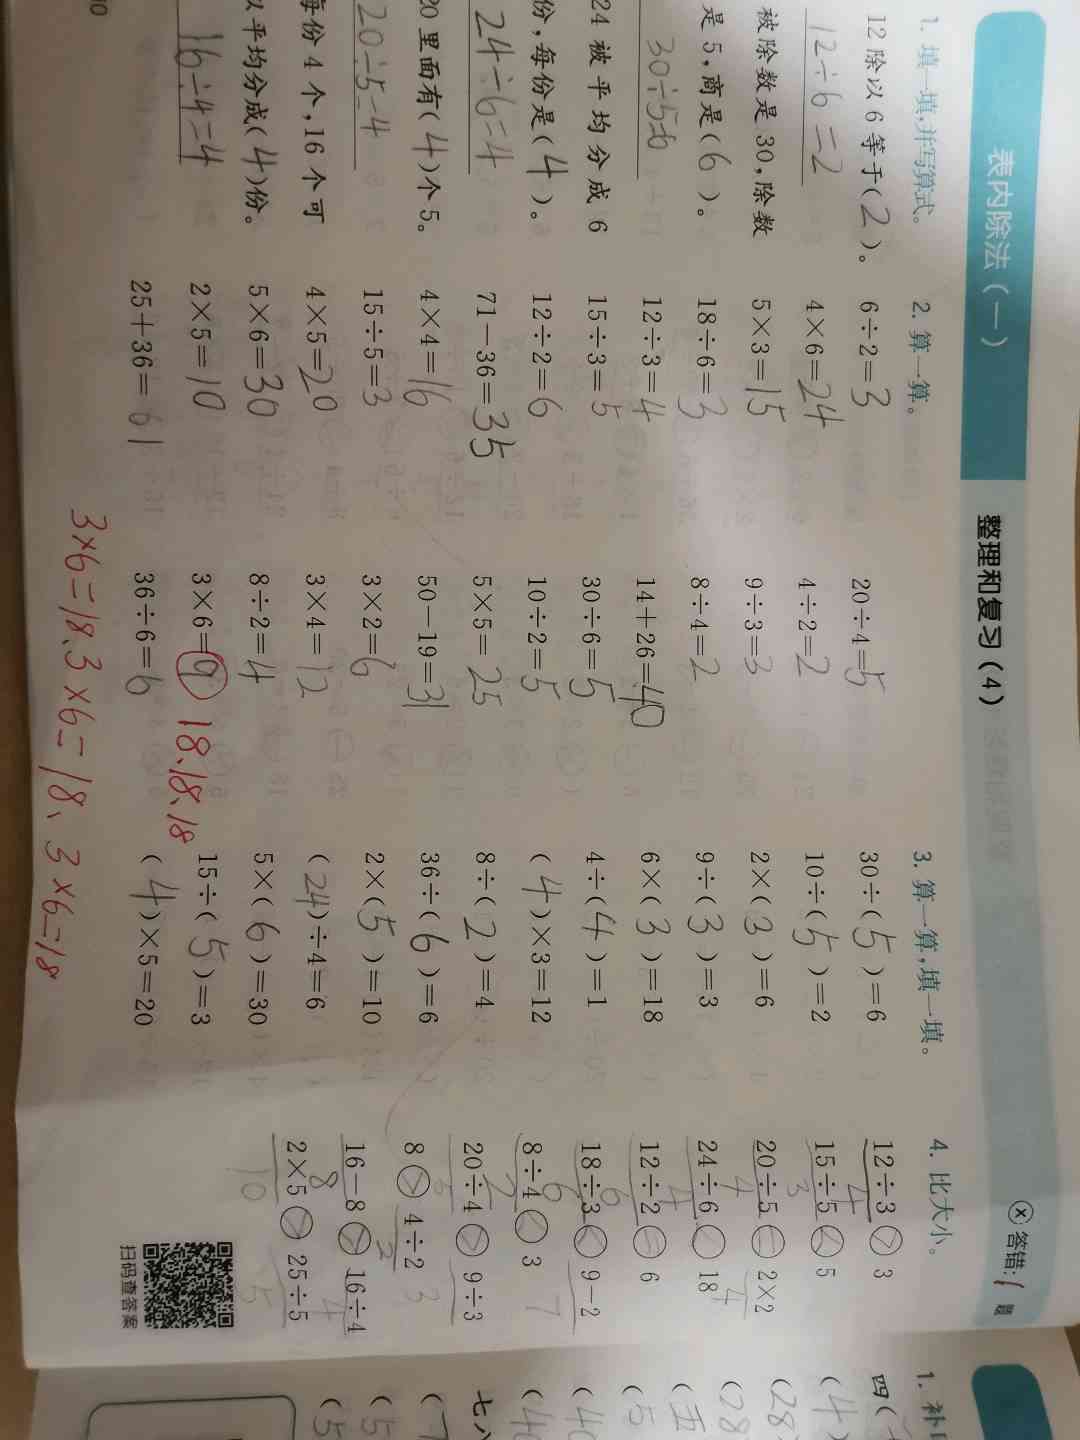 表内除法(一)
整理和复习(4)
答错:1题
1. 填一填,并写算式。
12除以6等于(2)。
12÷6=2
被除数是30,除数
是5,商是(6)。
24被平均分成6
份,每份是(4)。
24÷6=4
20里面有(4)个5。
20÷5=4
每份4个,16个可
以平均分成(4)份。
16÷4=4
2. 算一算。
6÷2=3
4×6=24
5×3=15
18÷6=3
12÷3=4
15÷3=5
12÷2=6
71-36=35
4×4=16
15÷5=3
4×5=20
5×6=30
2×5=10
25+36=61
20÷4=5
4÷2=2
9÷3=3
8÷4=2
14+26=40
30÷6=5
10÷2=5
5×5=25
50-19=31
3×2=6
3×4=12
8÷2=4
3×6=9 18、18、18
36÷6=6
3×6=18、3×6=18、3×6=18
3. 算一算,填一填。
30÷(5)=6
10÷(5)=2
2×(3)=6
9÷(3)=3
6×(3)=18
4÷(4)=1
(4)×3=12
8÷(2)=4
36÷(6)=6
2×(5)=10
(24)÷4=6
5×(6)=30
15÷(5)=3
(4)×5=20
4. 比大小。
12÷3>3
4
15÷5<5
3
20÷5=2×2
4 4
24÷6<18
4
12÷2=6
6
18÷3<9-2
6 7
8÷4<3
2
20÷4>9÷3
5 3
8>4÷2
2
16-8>16÷4
8 4
2×5>25÷5
10 5
扫码查答案
1. 补
四(
(4)
(28
(28
(五
(5
(40
(40
七八
(7
(5
(5